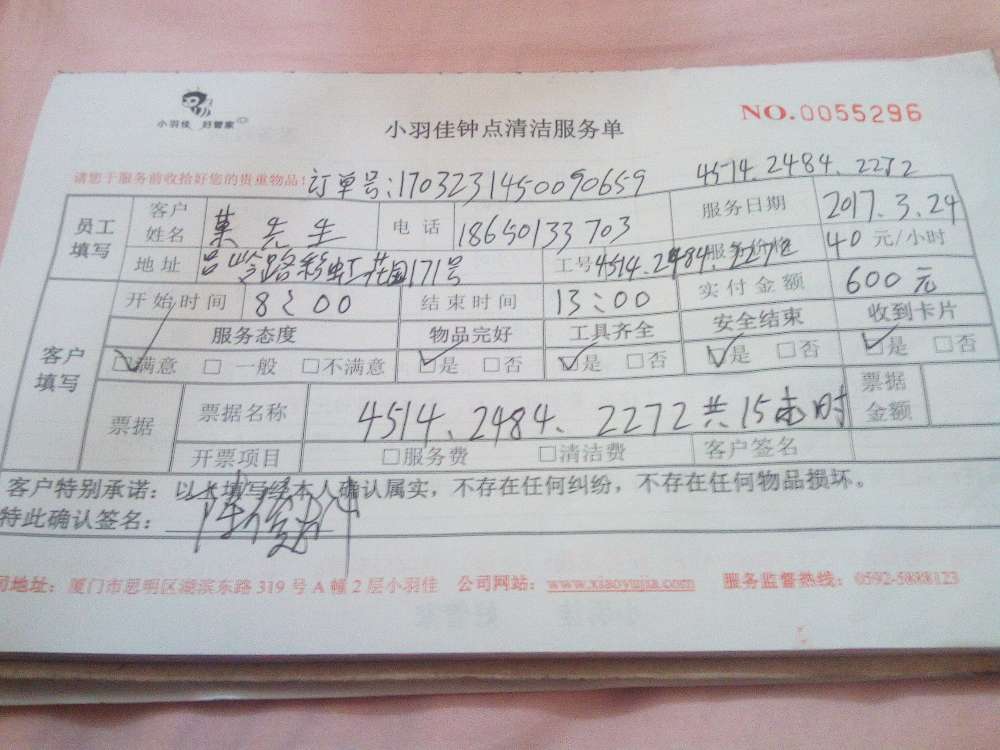 小羽佳 好管家
小羽佳钟点清洁服务单
NO.0055296
请您于服务前收拾好您的贵重物品!
订单号:1703231450090659
4574.2484.2272
员工填写 客户姓名 先生 电话 18650133703 服务日期 2017.3.24
地址 吕岭路彩虹花园171号 工号 4514.2484.2272 服务价格 40 元/小时
开始时间 8:00 结束时间 13:00 实付金额 600元
客户填写 服务态度 物品完好 工具齐全 安全结束 收到卡片
☑满意 □一般 □不满意 ☑是 □否 ☑是 □否 ☑是 □否 ☑是 □否
票据 票据名称 4514、2484、2272共15小时 票据金额
开票项目 □服务费 □清洁费 客户签名
客户特别承诺:以上填写经本人确认属实,不存在任何纠纷,不存在任何物品损坏。
特此确认签名:
司地址:厦门市思明区湖滨东路319号A幢2层小羽佳 公司网站:www.xiaoyujia.com 服务监督热线:0592-5888123